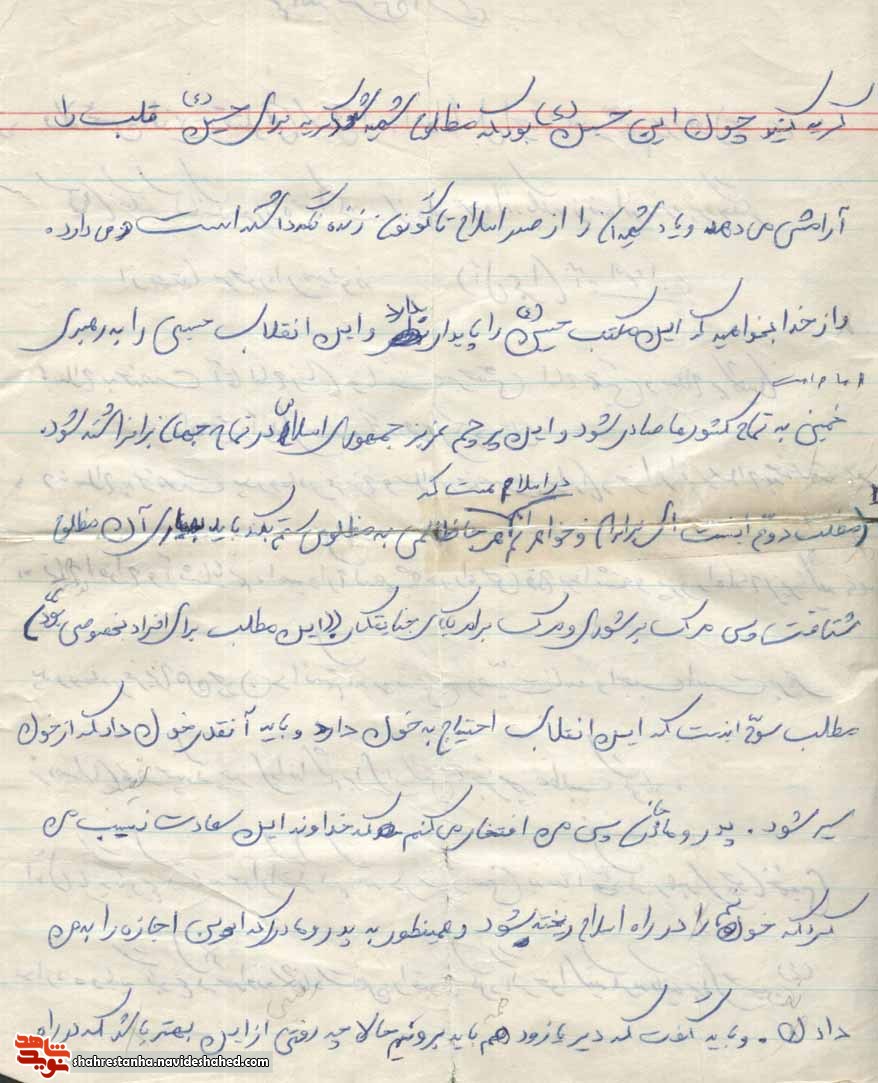 گریه کنید چون این حسین (ع) بود که مظلوم شهید شد گریه برای حسین (ع) قلب را
آرامش می دهد و یاد شهیدان را از صدر اسلام تا کنون زنده نگه داشته است و می دارد.
و از خدا بخواهید که این مکتب حسین (ع) را پایدار بدارد و این انقلاب حسینی را به رهبری
امام امت
خمینی به تمام کشورها صادر شود و این پرچم عزیز جمهوری اسلامی در تمام جهان برافراشته شود.
در اسلام هست که
(مطلب دوم اینست ای برادرام و خواهرانم هر جا ظالمی به مظلومی ستم بکند باید بیاری آن مظلوم
شتافت و مرگ بر شوروی و مرگ بر امریکای جنایتکار ((این مطلب برای افراد بخصوصی بود))
مطلب سوم اینست که این انقلاب احتیاج به خون دارد و باید آنقدر خون داد که از خون
سیر شود. پدر و مادر جان من افتخار می کنم که خداوند این سعادت نصیب من
کرد که خونم را در راه اسلام ریخته شود و همینطور به پدر و مادر که این اجازه را به من
دادن. و باید گفت که دیر یا زود همه باید برویم حالا چه رفتنی از این بهتر باشد که در راه
شاهد
نوید
shahrestanha.navideshahed.com